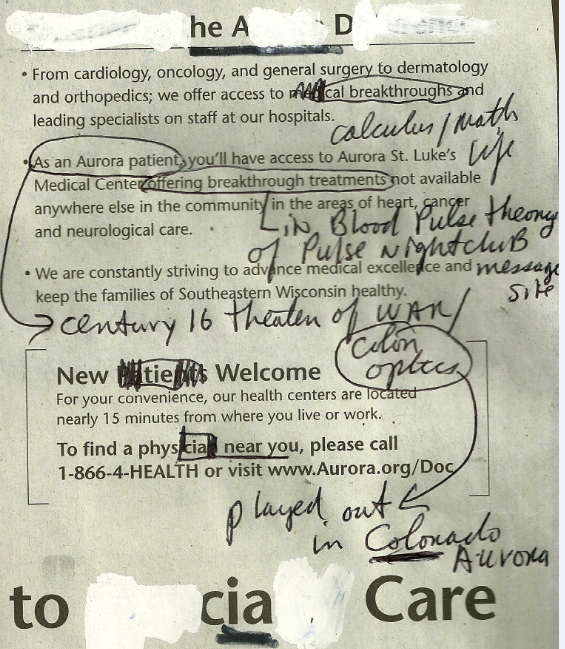 he A D
• From cardiology, oncology, and general surgery to dermatology
and orthopedics; we offer access to cal breakthroughs and
leading specialists on staff at our hospitals.
calculus/math
• As an Aurora patient, you'll have access to Aurora St. Luke's
Life
Medical Center offering breakthrough treatments not available
anywhere else in the community in the areas of heart, cancer
and neurological care.
in Blood Pulse theory
of Pulse nightcluB
• We are constantly striving to advance medical excellence and
message
keep the families of Southeastern Wisconsin healthy.
site
century 16 theater of WAR/
colon
optics
New tie s Welcome
For your convenience, our health centers are located
nearly 15 minutes from where you live or work.
To find a physician near you, please call
1-866-4-HEALTH or visit www.Aurora.org/Doc
played out
in Colorado
Aurora
to cia Care